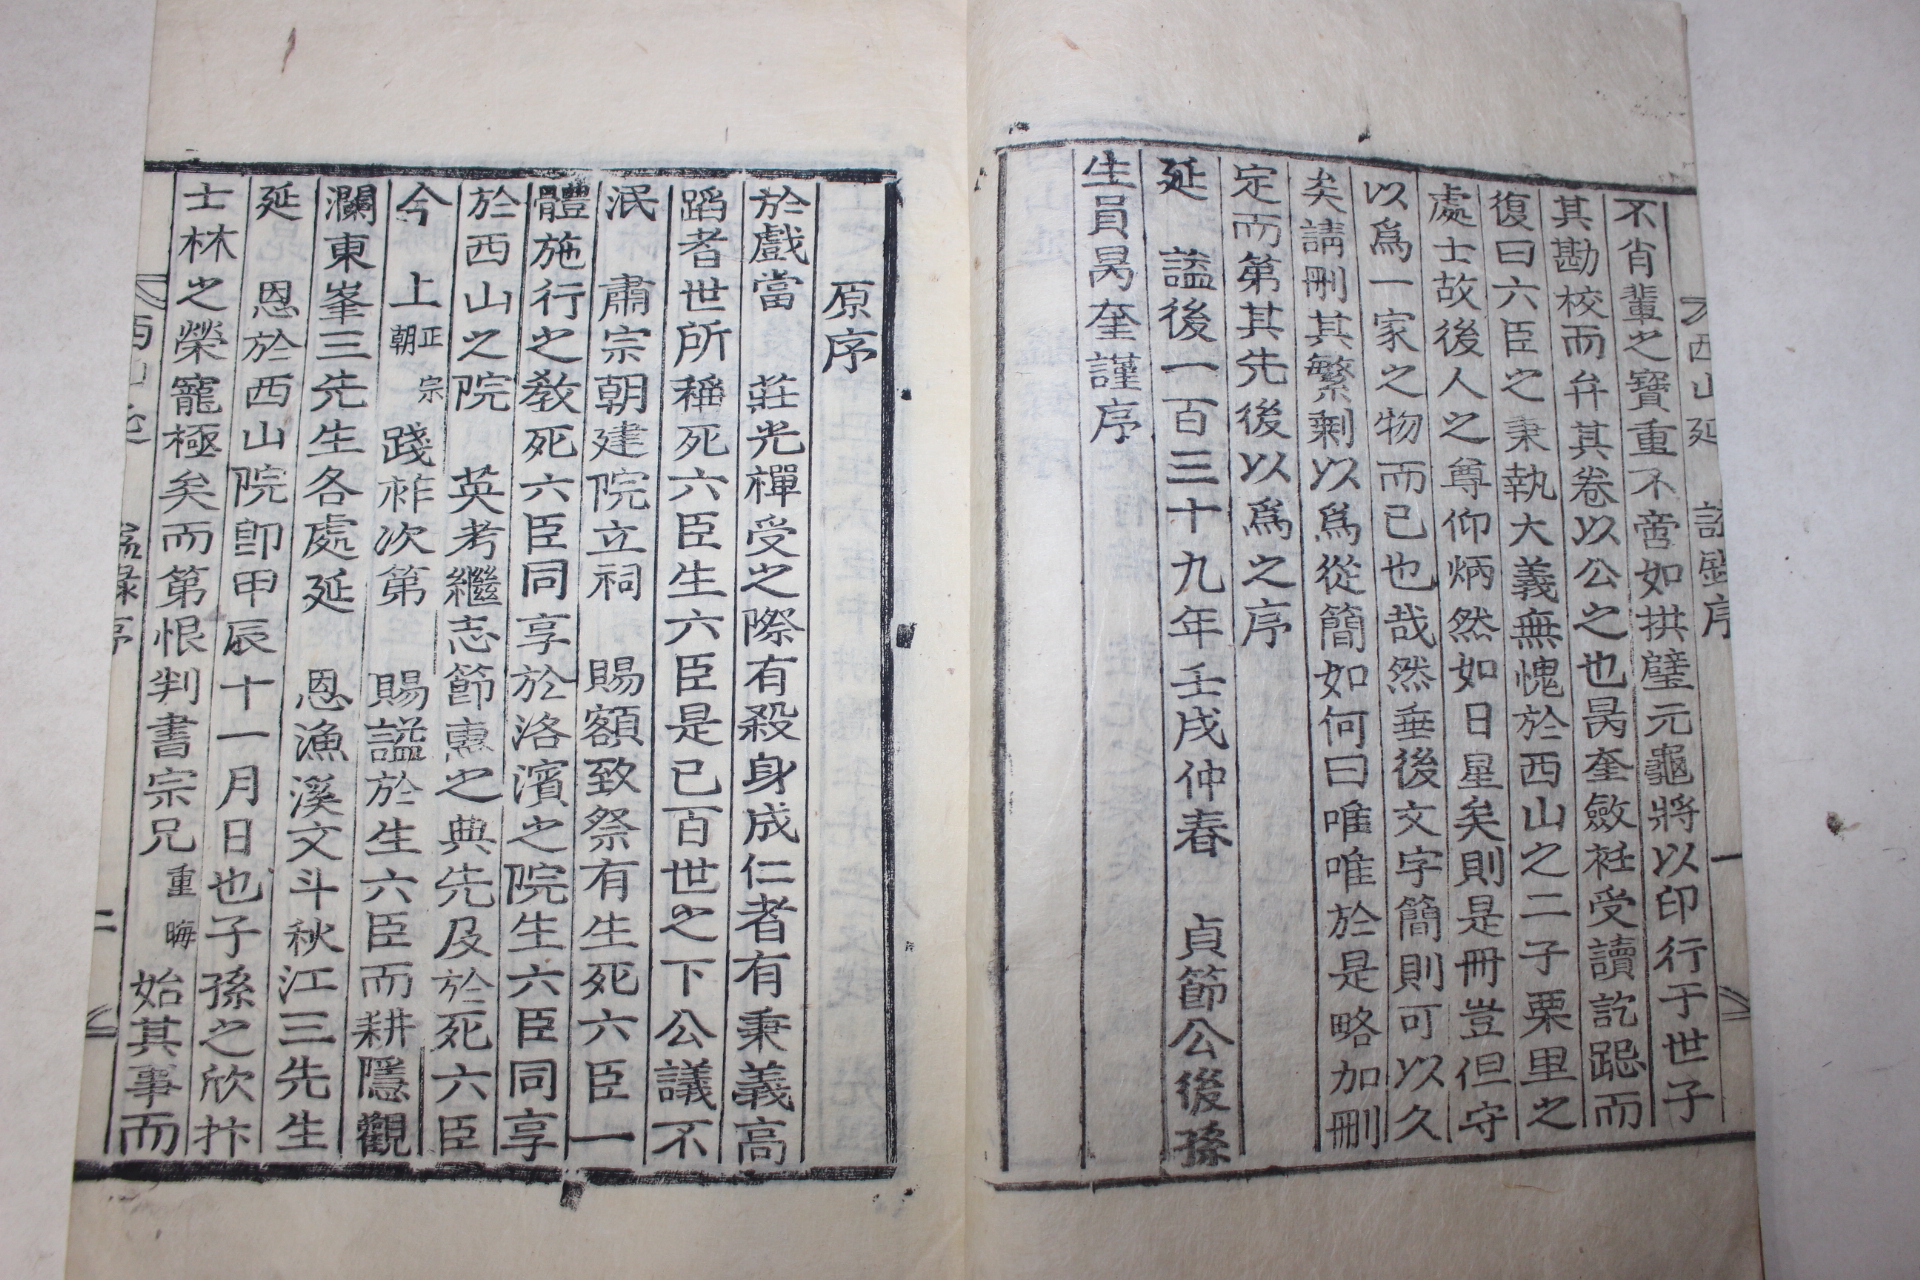 不肖輩之寶重不啻如拱璧元龜將以印行于世子
其勘校而弁其卷以公之也昺奎斂衽受讀訖跽而
復曰六臣之秉執大義無愧於西山之二子栗里之
處士故後人之尊仰炳然如日星矣則是冊豈但守
以爲一家之物而已也哉然垂後文字簡則可以久
矣請刪其繁剩以爲從簡如何曰唯唯於是略加刪
定而第其先後以爲之序
延 諡後一百三十九年壬戌仲春 貞節公後孫
生員昺奎謹序
原序
於戲當 莊光禪受之際有殺身成仁者有秉義高
蹈者世所稱死六臣生六臣是已百世之下公議不
泯 肅宗朝建院立祠 賜額致祭有生死六臣一
體施行之教死六臣同享於洛濱之院生六臣同享
於西山之院 英考繼志節惠之典先及於死六臣
今 上正宗朝踐祚次第 賜諡於生六臣而耕隱觀
瀾東峯三先生各處延 恩漁溪文斗秋江三先生
延 恩於西山院卽甲辰十一月日也子孫之欣抃
士林之榮寵極矣而第恨判書宗兄重晦始其事而
二